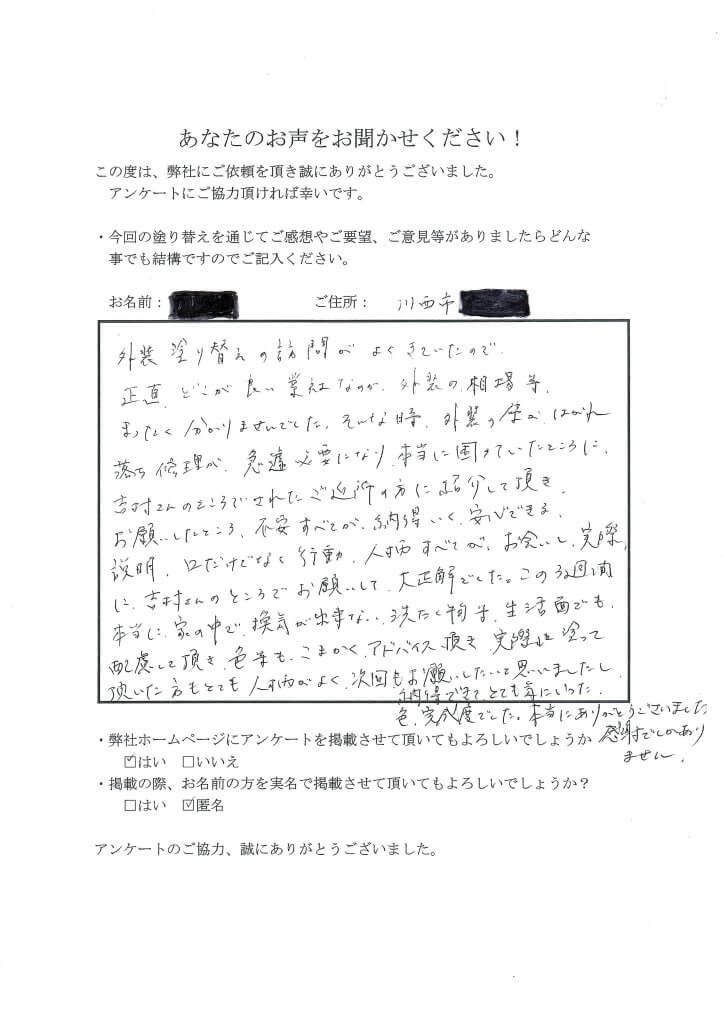 あなたのお声をお聞かせください！
この度は、弊社にご依頼を頂き誠にありがとうございました。
アンケートにご協力頂ければ幸いです。
・今回の塗り替えを通じてご感想やご要望、ご意見等がありましたらどんな
事でも結構ですのでご記入ください。
お名前： ご住所： 川西市
外装塗り替えの訪問がよくきていたので、
正直、どこが良い業社なのか、外装の相場等、
まったく分かりませんでした。そんな時、外装の壁がはがれ
落ち修理が、急遽必要になり、本当に困っていたところに、
吉村さんのところでされたご近所の方に紹介して頂き、
お願いしたところ、不安すべてが、納得いく、安心できる、
説明、口だけでなく行動、人柄すべてが、お会いし、実際
に、吉村さんのところでお願いして、大正解でした。この 週間
本当に、家の中で、換気が出来ない、洗たく物等、生活面でも、
配慮して頂き、色等も、こまかく、アドバイス頂き、実際に塗って
頂いた方もとても人柄がよく、次回もお願いしたいって思いましたし
納得できて、とても気にいった、
色、完成度でした。本当にありがとうございました
感謝でしかあり
ません。
・弊社ホームページにアンケートを掲載させて頂いてもよろしいでしょうか
☑はい □いいえ
・掲載の際、お名前の方を実名で掲載させて頂いてもよろしいでしょうか？
□はい ☑匿名
アンケートのご協力、誠にありがとうございました。